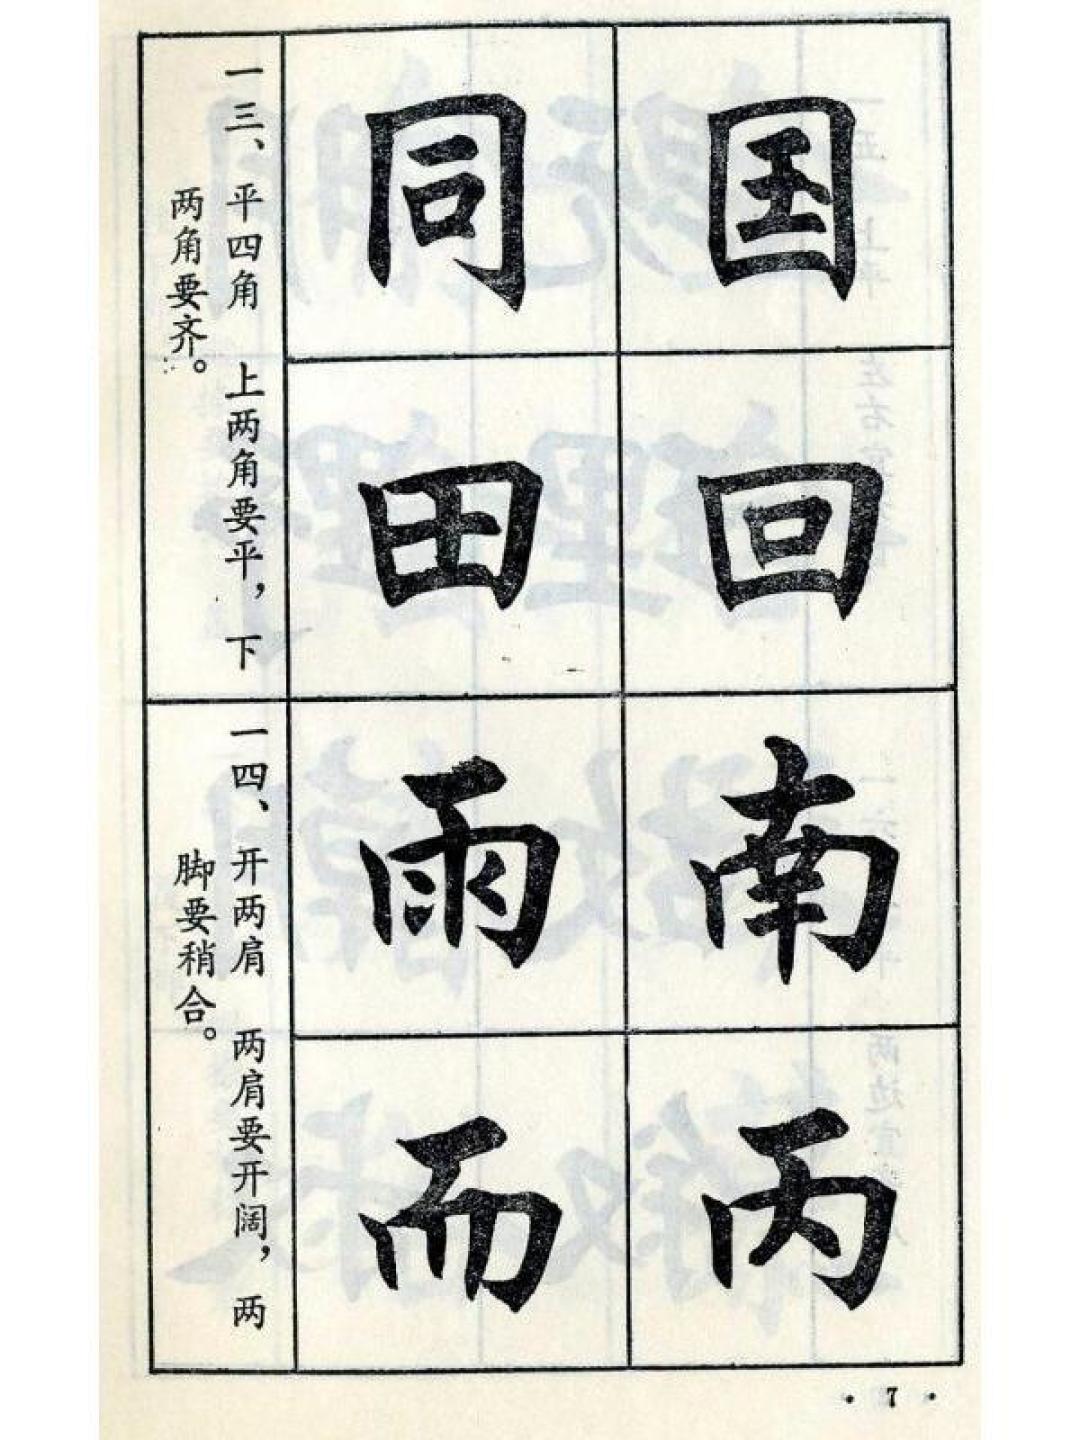 囯
回
南
丙
同
田
雨
而
一三、平四角 上两角要平，下
两角要齐。
一四、开两肩 两肩要开阔，两
脚要稍合。
·7·